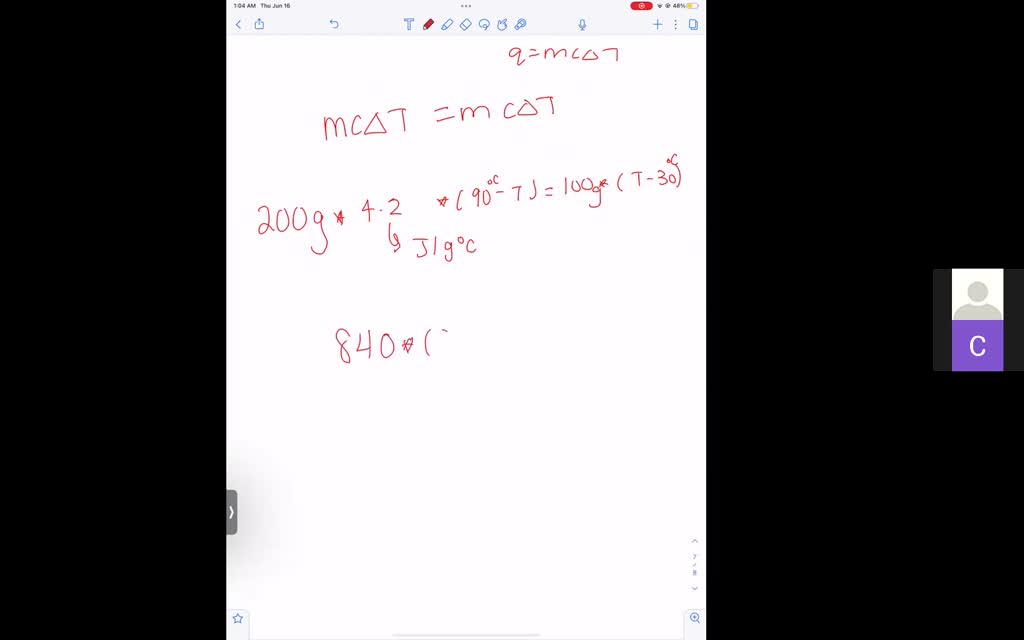 1:04 AM Thu Jun 16
48%
T
q=mc△T
mc△T =mc△T
200g * 4.2 *(90°C-T)=100g*(T-30°C)
↳ J/g°C
840*(
7
/
8
C